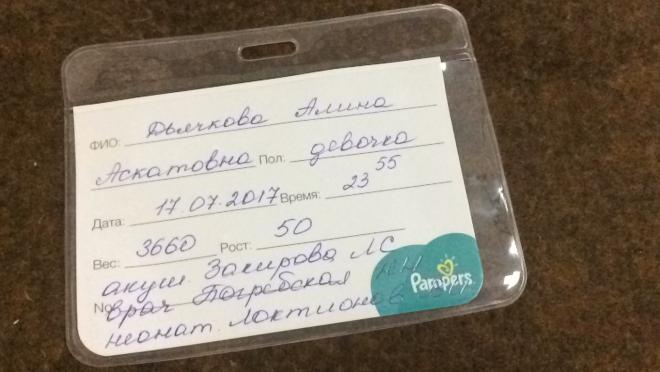 ФИО: Дьячкова Алина
Аскатовна Пол: девочка
Дата: 17.07.2017 Время: 23 55
Вес: 3660 Рост: 50
акуш. Закирова ЛС
No врач Погребская
неонат. Локтионов
Pampers